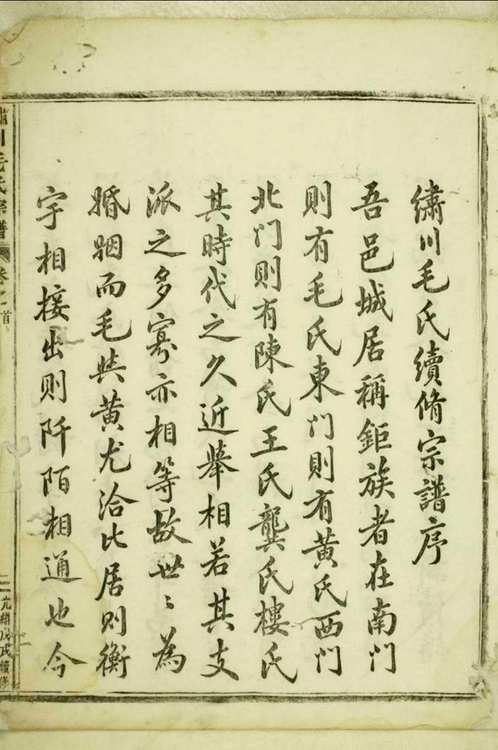 繡川毛氏續脩宗譜序
吾邑城居稱鉅族者在南門
則有毛氏東門則有黃氏西門
北門則有陳氏王氏龔氏樓氏
其時代之久近舉相若其支
派之多寡亦相等故世〻為
婚姻而毛與黃尤洽比居則衡
宇相接出則阡陌相通也今
川毛氏宗譜 卷之 首
光緒戊戌續修